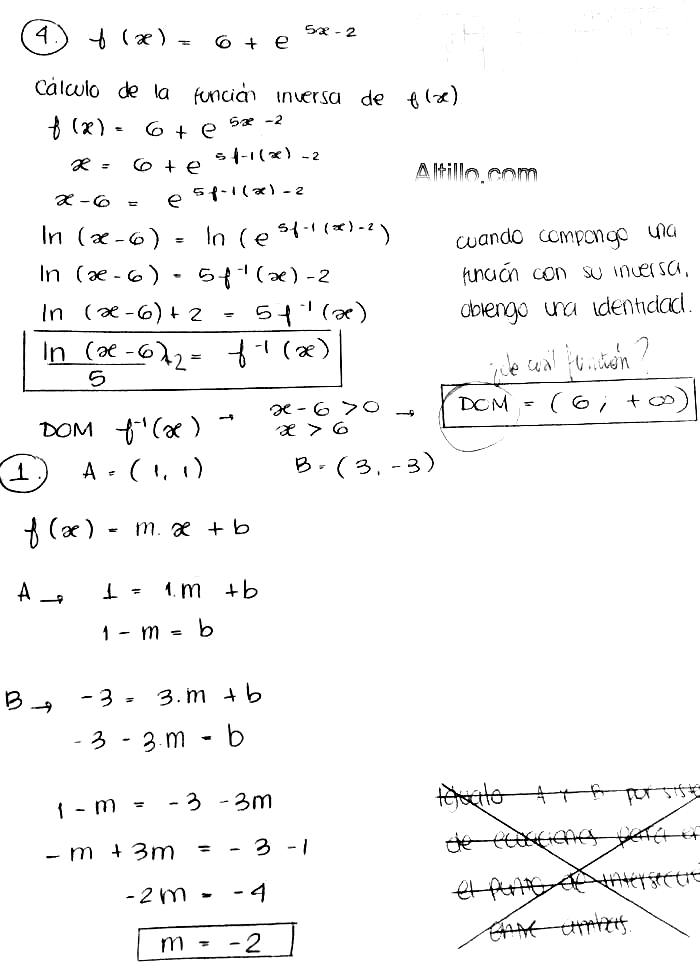 4. f(x) = 6 + e^5x-2
Cálculo de la función inversa de f(x)
f(x) = 6 + e^5x-2
x = 6 + e^5f-1(x)-2
x-6 = e^5f-1(x)-2
Altillo.com
ln (x-6) = ln (e^5f-1(x)-2)
cuando compongo una
ln (x-6) = 5f^-1(x)-2
función con su inversa,
ln (x-6)+2 = 5f^-1(x)
obtengo una identidad.
ln (x-6)+2 = f^-1(x)
5
¿de cuál función?
DOM f^-1(x) → x-6 >0 →
x > 6
DOM = (6; +∞)
1. A = (1, 1) B = (3, -3)
f(x) = m. x + b
A → 1 = 1.m + b
1 - m = b
B → -3 = 3.m + b
-3 - 3.m = b
1 - m = -3 - 3m
Igualo A y B por siste
-m + 3m = -3 -1
de ecuaciones para en
-2m = -4
el punto de intersecci
m = -2
entre ambas.